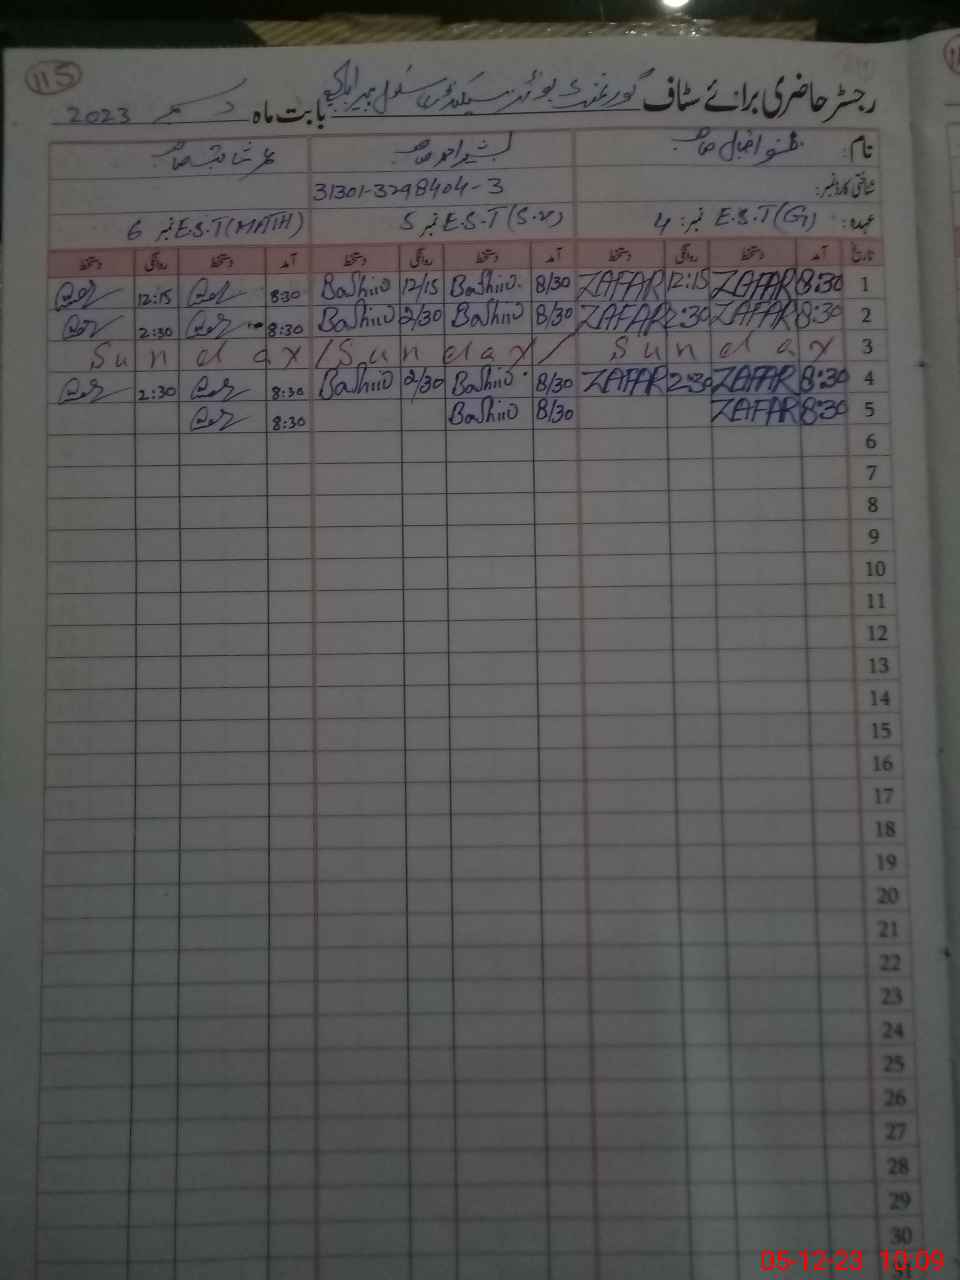 115
رجسٹر حاضری برائے سٹاف گورنمنٹ بوائز سیکنڈری سکول
بابت ماہ دسمبر 2023
نام: ظفر اقبال صاحب بشیر احمد صاحب
شناختی کارڈ نمبر: 31301-3298404-3
عہدہ: E.S.T(G) نمبر: 4 E.S.T(S.V) نمبر 5 E.S.T(MATH) نمبر 6
تاریخ آمد دستخط روانگی دستخط آمد دستخط روانگی دستخط آمد دستخط روانگی دستخط
1 8:30 ZAFAR 12:15 ZAFAR 8/30 Bashir 12/15 Bashir 8:30 12:15
2 8:30 ZAFAR 2:30 ZAFAR 8/30 Bashir 2/30 Bashir 8:30 2:30
3 Sunday / Sunday / Sunday
4 8:30 ZAFAR 2:30 ZAFAR 8/30 Bashir 2/30 Bashir 8:30 2:30
5 8:30 ZAFAR 8/30 Bashir 8:30
6
7
8
9
10
11
12
13
14
15
16
17
18
19
20
21
22
23
24
25
26
27
28
29
30
05-12-23 10:09